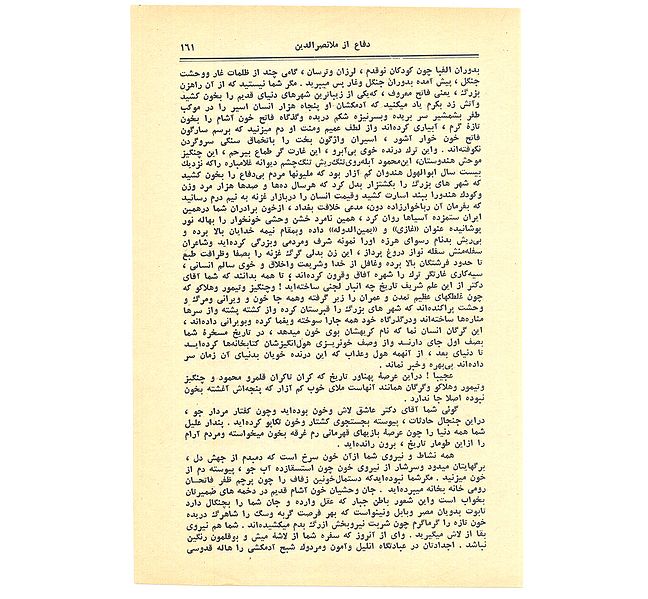 ۱۶۱
دفاع از ملانصرالدین
بدوران الفبا چون کودکان نوقدم ، لرزان وترسان ، گامی چند از ظلمات غار ووحشت
جنگل ، پیش آمده بدوران جنگل وغار پس میبرید . مگر شما نیستید که از آن راهزن
بزرگ ، یعنی فاتح معروف ، که یکی از زیباترین شهرهای دنیای قدیم را بخون کشید
وآتش زد بکرم یاد میکنید که آدمکشان او پنجاه هزار انسان اسیر را در موکب
ظفر بشمشیر سر بریده وبسرنیزه شکم دریده وگلدگاه فاتح خون آشام را بخون
تازهٔ گرم ، آبیاری کرده‌اند واز لطف عمیم ومنت او دم میزنید که برسم سارگون
فاتح خون خوار آشور ، اسیران واژگون بخت را باتخماق سنگی سروگردن
نکوفته‌اند . واین ترك درنده خوی بی‌آبرو ، این غارت گر طماع بیرحم ، این چنگیز
موحش هندوستان، این محمود آبله‌روی تنگ‌ریش تنگ‌چشم دیوانه غلامباره راکه نزدیك
بیست سال ابوالهول هندوان کم آزار بود که ملیونها مردم بی‌دفاع را بخون کشید
که شهر های بزرگ را بکشتزار بدل کرد که هرسال ده‌ها و صدها هزار مرد وزن
وکودك هندورا ببند اسارت کشید وقیمت انسان را دربازار غزنه به نیم درم رسانید
که بفرمان آن رباخوارزاده دون، مدعی خلافت بغداد ، ازخون برادران شما درهمین
ایران ستمزده آسیاها روان کرد ، همین نامرد خشن وحشی خونخوار را بهاله نور
پوشانیده عنوان «غازی» و «یمین‌الدوله» داده وبمقام نیمه خدایان بالا برده و
بی‌ریش بدنام رسوای هرزه اورا نمونه شرف ومردمی وبزرگی کرده‌اید وشاعران
سفله‌منش سفله نواز دروغ پرداز ، این زن بدلی گرگ غزنه را بصفا وظرافت طبع
تا حدود فرشتگان بالا برده وغافل از خدا وشریعت واخلاق و خوی سالم انسانی ،
سیه‌کاری غارتگر ترك را شهره آفاق وقرون کرده‌اند ؛ تا همه بدانند که شما آقای
دکتر از این علم شریف تاریخ چه انبار لجنی ساخته‌اید ! وچنگیز وتیمور وهلاکو که
چون غلطکهای عظیم تمدن و عمران را زیر گرفته وهمه جا خون و ویرانی ومرگ و
وحشت پراکنده‌اند که شهر های بزرگ را قبرستان کرده واز کشته پشته واز سرها
مناره‌ها ساخته‌اند ودرگذرگاه خود همه جارا سوخته ویغما کرده وبویرانی داده‌اند ،
این گرگان انسان نما که نام کریهشان بوی خون میدهد ، در تاریخ مسخرهٔ شما
بصف اول جای دارند واز وصف خونریزی هول‌انگیزشان کتابخانه‌ها کرده‌اید
تا دنیای بعد ، از آنهمه هول وعذاب که این درنده خویان بدنیای آن زمان سر
داده‌اند بی‌بهره وخبر نماند .
عجیبا ! دراین عرصهٔ پهناور تاریخ که کران تاکران قلمرو محمود و چنگیز
وتیمور وهلاکو وگرگان همانند آنهاست ملای خوب کم آزار که پنجه‌اش آغشته بخون
نبوده اصلا جا ندارد .
گوئی شما آقای دکتر عاشق لاش وخون بوده‌اید وچون کفتار مردار جو ،
دراین جنجال حادثات ، پیوسته بجستجوی کشتار وخون تکاپو کرده‌اید . پندار علیل
شما همه دنیا را چون عرصهٔ بازیهای قهرمانی رم غرقه بخون میخواسته ومردم آرام
را ازاین طومار تاریخ ، برون رانده‌اید .
همه نشاط و نیروی شما ازآن خون سرخ است که دمبدم از جهش دل ،
برگهایتان میدود وسرشار از نیروی خون چون استسقازده آب جو ، پیوسته دم از
خون میزنید . مگرشما نبوده‌اید که دستمال خونین زفاف را چون پرچم ظفر فاتحان
رومی خانه بخانه میبرده‌اید . جان وحشیان خون آشام قدیم در دخمه های ضمیرتان
بخواب است واین شعور باطن جبار که عقل وارده و جان شما را بچنگال دارد
تابوت بدویان مصر وبابل ونینواست که بهر فرصت گربه وسگ را شاهرگ دریده
خون تازه را گرماگرم چون شربت نیروبخش ازرگ بدم میکشیده‌اند . شما هم نیروی
بقا از لاش میگیرید . وای از آنروز که سفره شما از لاشهٔ میش و بوقلمون رنگین
نباشد . اجدادتان در عبادتگاه انلیل وآمون ومردوك شبح آدمکشی را هاله قدوسی